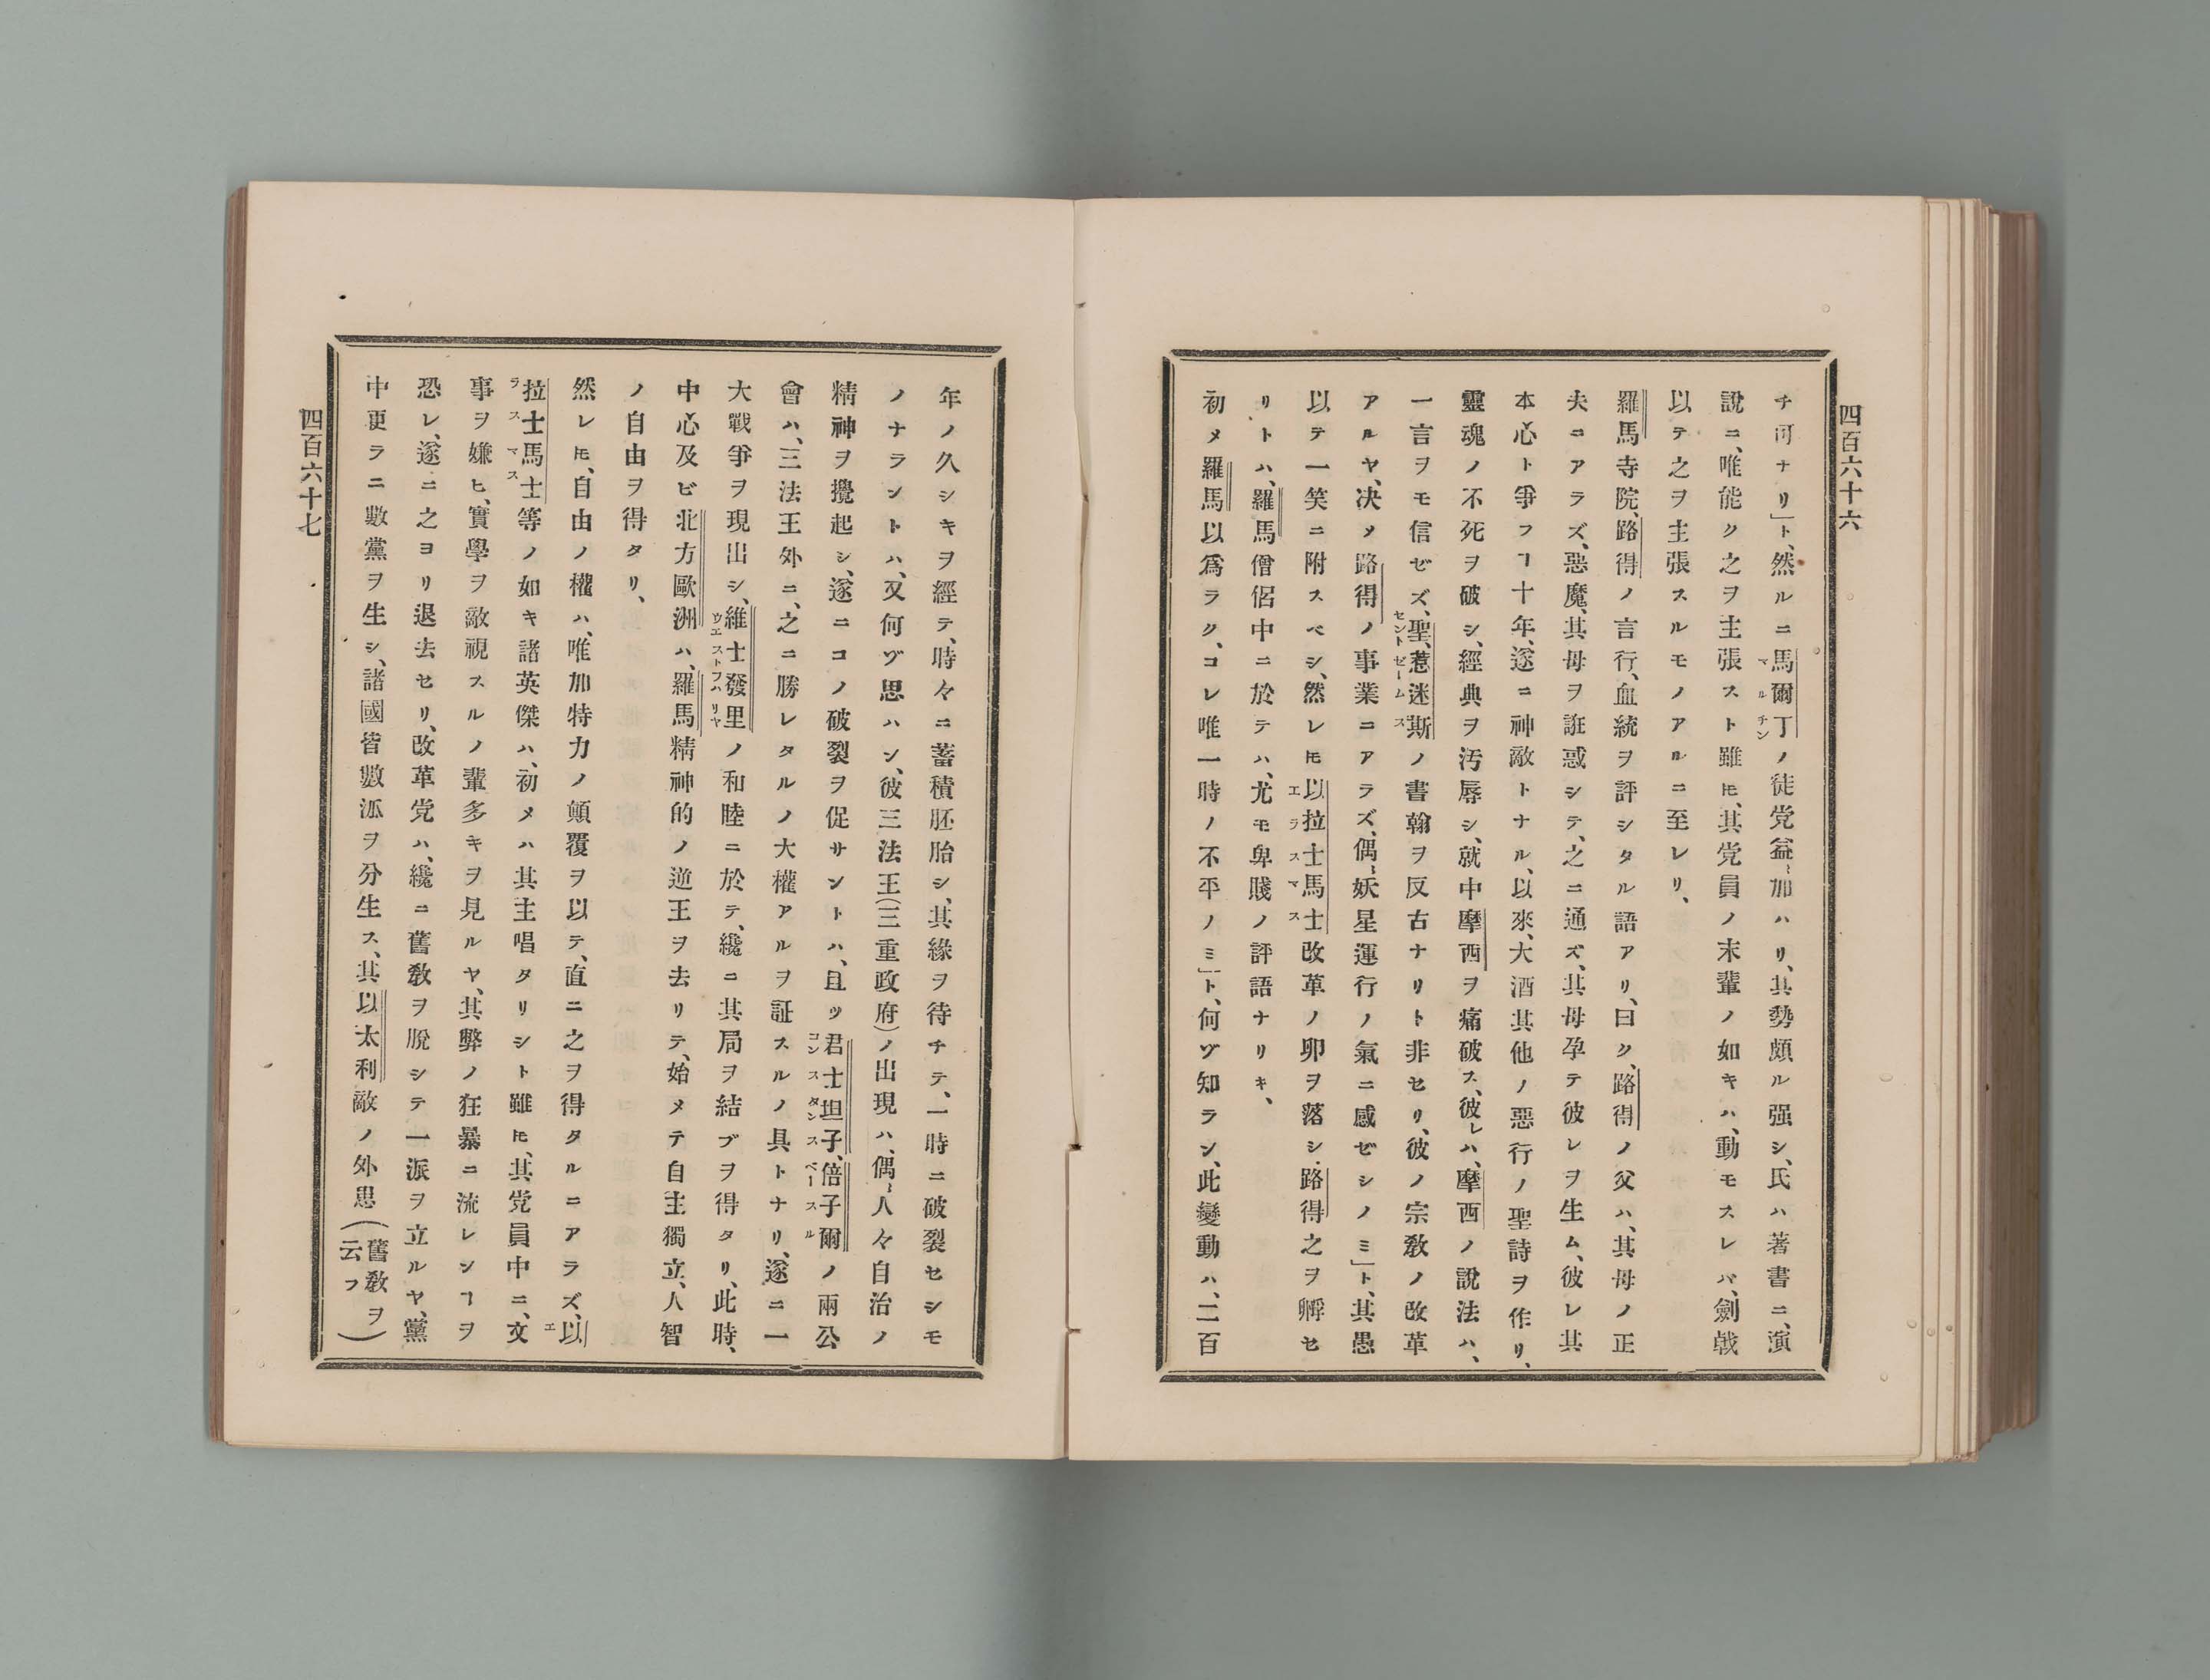 四百六十六
チ可ナリ」ト、然ルニ馬爾丁ノ徒党益〻加ハリ、其勢頗ル强シ、氏ハ著書ニ、演
マルチン
說ニ、唯能ク之ヲ主張スト雖𪜈、其党員ノ末輩ノ如キハ、動モスレバ、劍戟
以テ之ヲ主張スルモノアルニ至レリ、
羅馬寺院、路得ノ言行、血統ヲ評シタル語アリ、曰ク、路得ノ父ハ、其母ノ正
夫ニアラズ、惡魔、其母ヲ誑惑シテ、之ニ通ズ、其母孕テ彼レヲ生ム、彼レ其
本心ト爭フヿ十年、遂ニ神敵トナル、以來、大酒其他ノ惡行ノ聖詩ヲ作リ、
靈魂ノ不死ヲ破シ、經典ヲ汚辱シ、就中摩西ヲ痛破ス、彼レハ、摩西ノ說法ハ、
一言ヲモ信ゼズ、聖、惹迷斯ノ書翰ヲ反古ナリト非セリ、彼ノ宗敎ノ改革
セントゼームス
アルヤ、决メ路得ノ事業ニアラズ、偶〻妖星運行ノ氣ニ感ゼシノミ」ト、其愚
以テ一笑ニ附スベシ、然レ𪜈以拉士馬士改革ノ卵ヲ落シ、路得之ヲ孵セ
エラスマス
リトハ、羅馬僧侶中ニ於テハ、尤モ卑賤ノ評語ナリキ、
初メ羅馬以爲ラク、コレ唯一時ノ不平ノミ」ト、何ゾ知ラン、此變動ハ、二百
年ノ久シキヲ經テ、時々ニ蓄積胚胎シ、其緣ヲ待チテ、一時ニ破裂セシモ
ノナラントハ、又何ゾ思ハン、彼三法王(三重政府)ノ出現ハ、偶〻人々自治ノ
精神ヲ攪起シ、遂ニコノ破裂ヲ促サントハ、且ツ君士坦子、倍子爾ノ兩公
コンスタンス ベースル
會ハ、三法王外ニ、之ニ勝レタルノ大權アルヲ証スルノ具トナリ、遂ニ一
大戰爭ヲ現出シ、維士發里ノ和睦ニ於テ、纔ニ其局ヲ結ブヲ得タリ、此時、
ウエストフハリヤ
中心及ビ北方歐洲ハ、羅馬精神的ノ逆王ヲ去リテ、始メテ自主獨立、人智
ノ自由ヲ得タリ、
然レ𪜈、自由ノ權ハ、唯加特力ノ顚覆ヲ以テ、直ニ之ヲ得タルニアラズ、以
エ
拉士馬士等ノ如キ諸英傑ハ、初メハ其主唱タリシト雖𪜈、其党員中ニ、文
ラスマス
事ヲ嫌ヒ、實學ヲ敵視スルノ輩多キヲ見ルヤ、其弊ノ狂暴ニ流レンヿヲ
恐レ、遂ニ之ヨリ退去セリ、改革党ハ、纔ニ舊敎ヲ脫シテ一派ヲ立ルヤ、黨
中更ラニ數黨ヲ生シ、諸國皆數派ヲ分生ス、其以太利敵ノ外思(舊敎ヲ云フ)
四百六十七